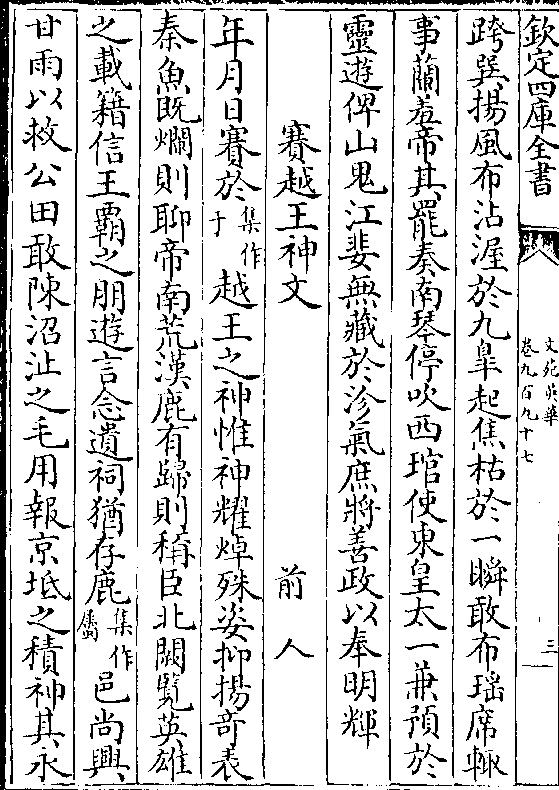 欽定四庫全書
文苑英華
卷九百九十七
三
跨巽揚風布沾渥於九臯起焦枯於一瞬敢布瑶席輙
事蘭羞帝其罷奏南琴停吹西琯使東皇太一兼預於
靈遊俾山鬼江婓無藏於沴氣庶將善政以奉明輝
賽越王神文 前人
年月日賽於集作于越王之神惟神耀焯殊姿抑揚竒表
秦魚既爛則聊帝南荒漢鹿有歸則稱臣北闕覧英雄
之載籍信王霸之朋遊言念遺祠猶存鹿集作𢊍邑尚興
甘雨以救公田敢陳沼沚之毛用報京坻之積神其永